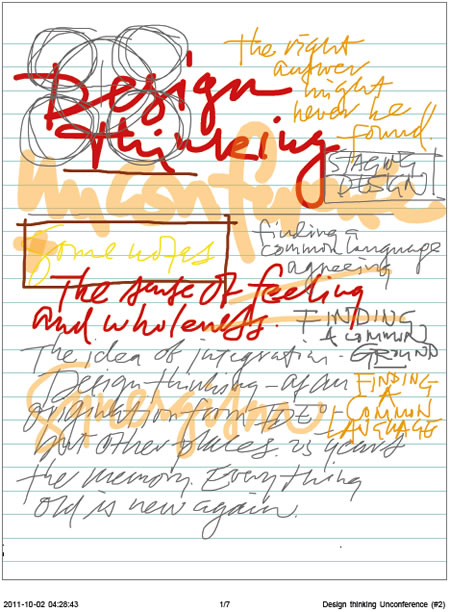 The right
answer
might
never be
found.
Design
thinking
STAGING
DESIGN!
Unconference
Some notes
finding a
common language
agreeing
The sense of feeling
and wholeness.
FINDING
A COMMON
GROUND
The idea of integration.
Design thinking - as an
origination from IDEO -
but other places. 25 years
the memory. Everything
old is new again.
FINDING
A
COMMON
LANGUAGE
2011-10-02 04:28:43
1/7
Design thinking Unconference (#2)